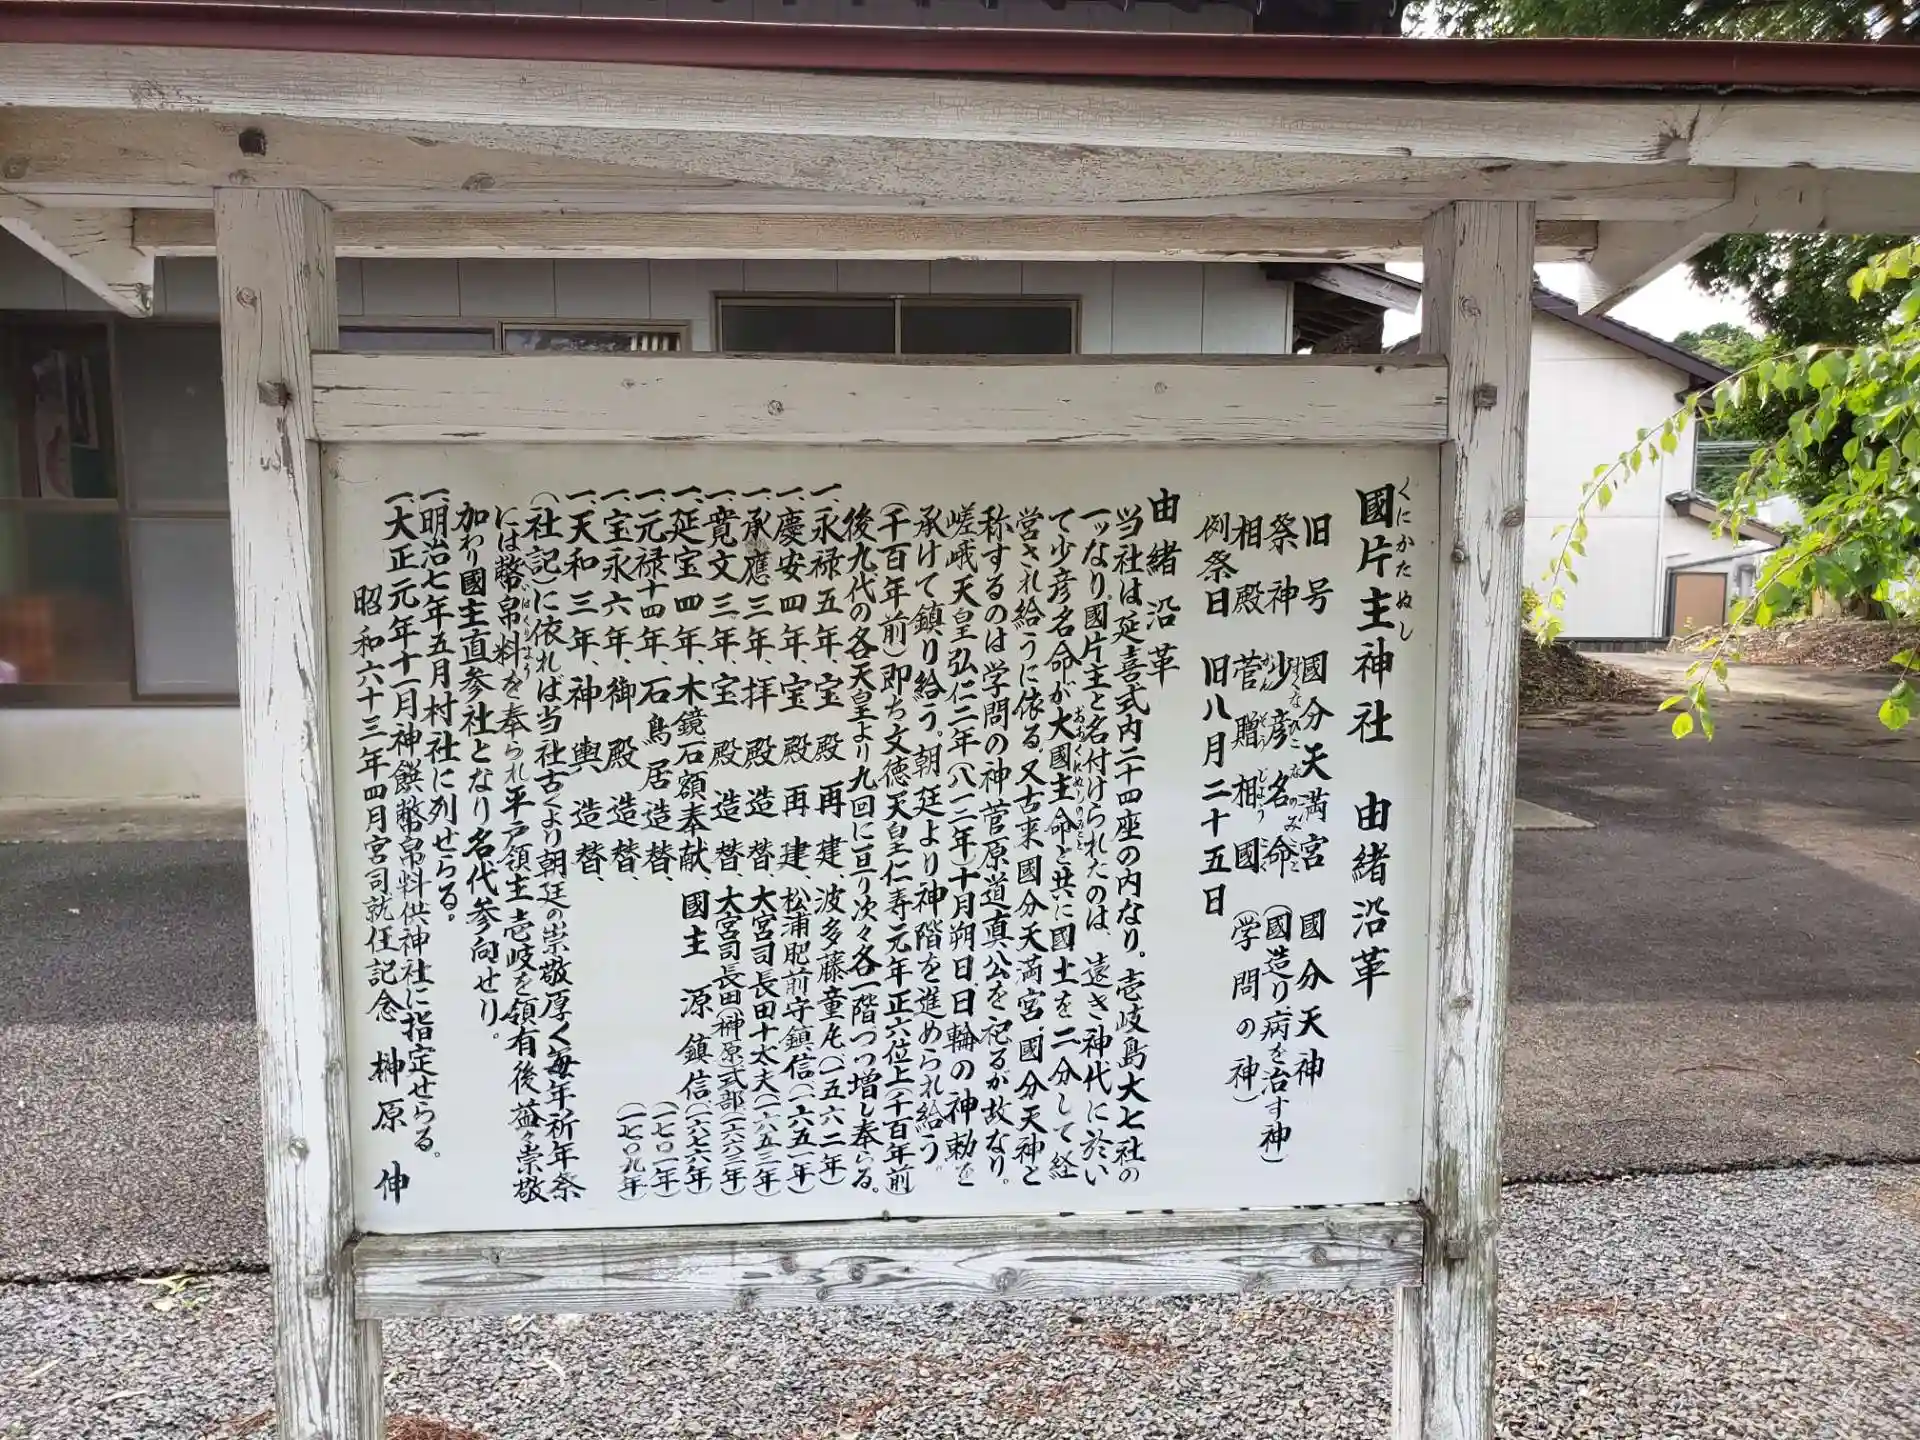 國片主神社 由緒沿革
くにかたぬし
旧号 國分天満宮 國分天神
祭神 少彦名命 (國造り、病を治す神)
相殿 菅贈相國 (学問の神)
かんぞうじょうこく
例祭日 旧八月二十五日
由緒沿革
当社は延喜式内二十四座の内なり。壱岐島大七社の
一ッなり。國片主と名付けられたのは、遠き神代に於い
て少彦名命が大國主命と共に國土を二分して経
おおくにぬしのみこと
営され給うに依る。又古来國分天満宮、國分天神と
称するのは学問の神菅原道真公を祀るが故なり。
嵯峨天皇弘仁二年(八一三年)十月朔日、日輪の神勅を
承けて鎮り給う。朝廷より神階を進められ給う。
(千百年前)即ち文徳天皇仁寿元年正六位上(千百年前)
後九代の各天皇より九回に亘り次々各一階づつ増し奉らる。
一、永禄五年、宝殿再建 波多藤童丸(一五六二年)
一、慶安四年、宝殿再建 松浦肥前守鎮信(一六五一年)
一、承應三年、拝殿造替 大宮司長田十太夫(一六五三年)
一、寛文三年、宝殿造替 大宮司長田(榊原)式部(一六六三年)
一、延宝四年、木鏡石額奉献、國主 源鎮信(一六七六年)
一、元禄十四年、石鳥居造替、(一七〇一年)
一、宝永六年、御殿造替、(一七〇九年)
一、天和三年、神輿造替、
(社記)に依れば当社古くより朝廷の崇敬厚く毎年祈年祭
には幣帛料を奉られ平戸領主壱岐を領有後益々崇敬
へいはくりよう
加わり國主直参社となり名代参向せり。
一、明治七年五月村社に列せらる。
一、大正元年十一月神饌幣帛料供神社に指定せらる。
昭和六十三年四月宮司就任記念 榊原 伸